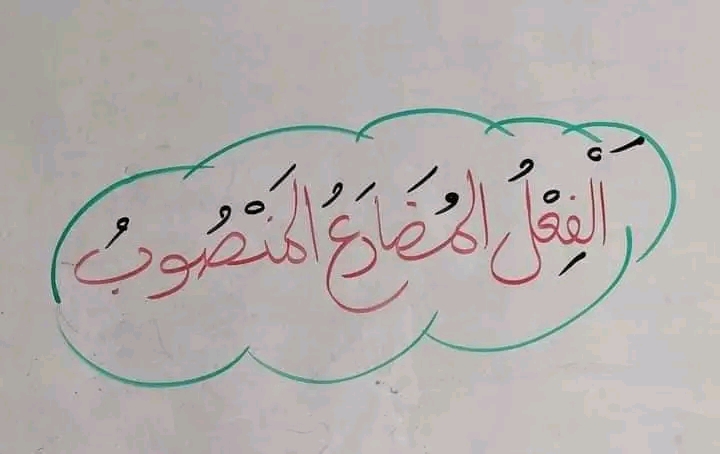 اَلْفِعْلُ المُضَارَعُ المَنْصُوبُ